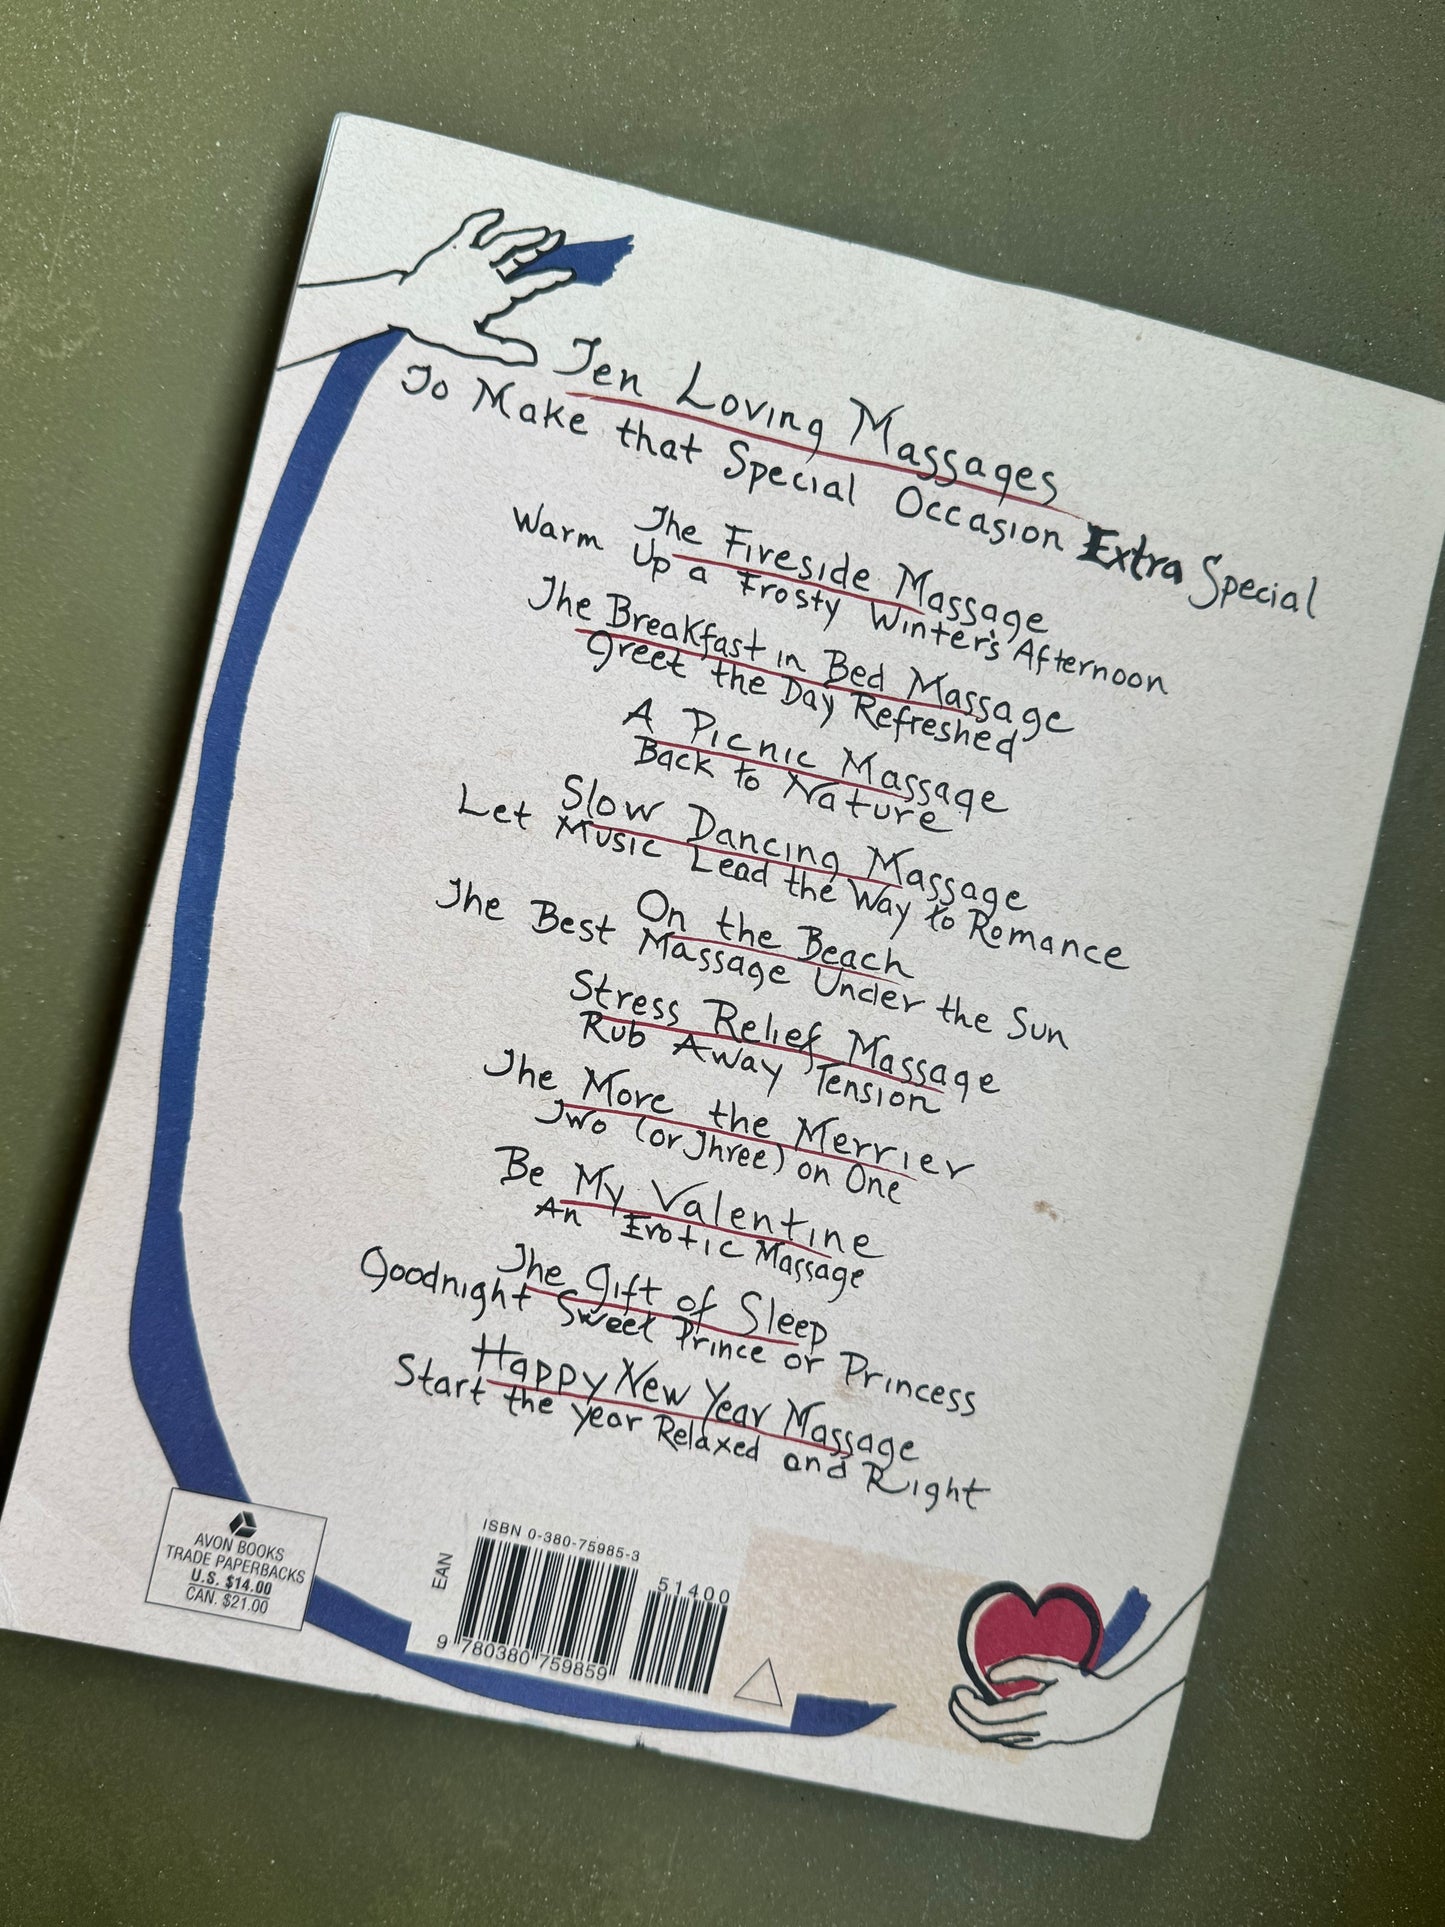 Ten Loving Massages
To Make that Special Occasion Extra Special
The Fireside Massage
Warm Up a Frosty Winter's Afternoon
The Breakfast in Bed Massage
Greet the Day Refreshed
A Picnic Massage
Back to Nature
Slow Dancing Massage
Let Music Lead the Way to Romance
On the Beach
The Best Massage Under the Sun
Stress Relief Massage
Rub Away Tension
The More the Merrier
Two (or Three) on One
Be My Valentine
An Erotic Massage
The Gift of Sleep
Goodnight Sweet Prince or Princess
Happy New Year Massage
Start the year Relaxed and Right
AVON BOOKS
TRADE PAPERBACKS
U.S. $14.00
CAN. $21.00
EAN
ISBN 0-380-75985-3
51400
9 780380 759859